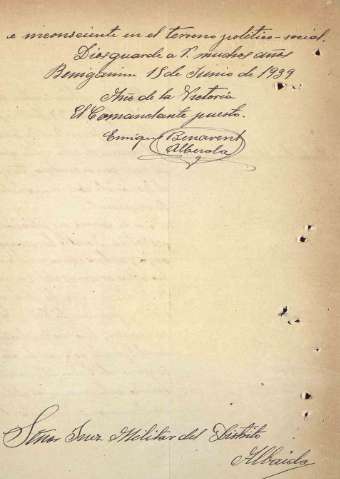 e inconsciente en el terreno politico-social.
Dios guarde a V. muchos años
Benigánim 18 de Junio de 1939
Año de la Victoria
El Comandante puesto.
Enrique Benavent
Alberola
Señor Juez Militar del Distrito
Albaida